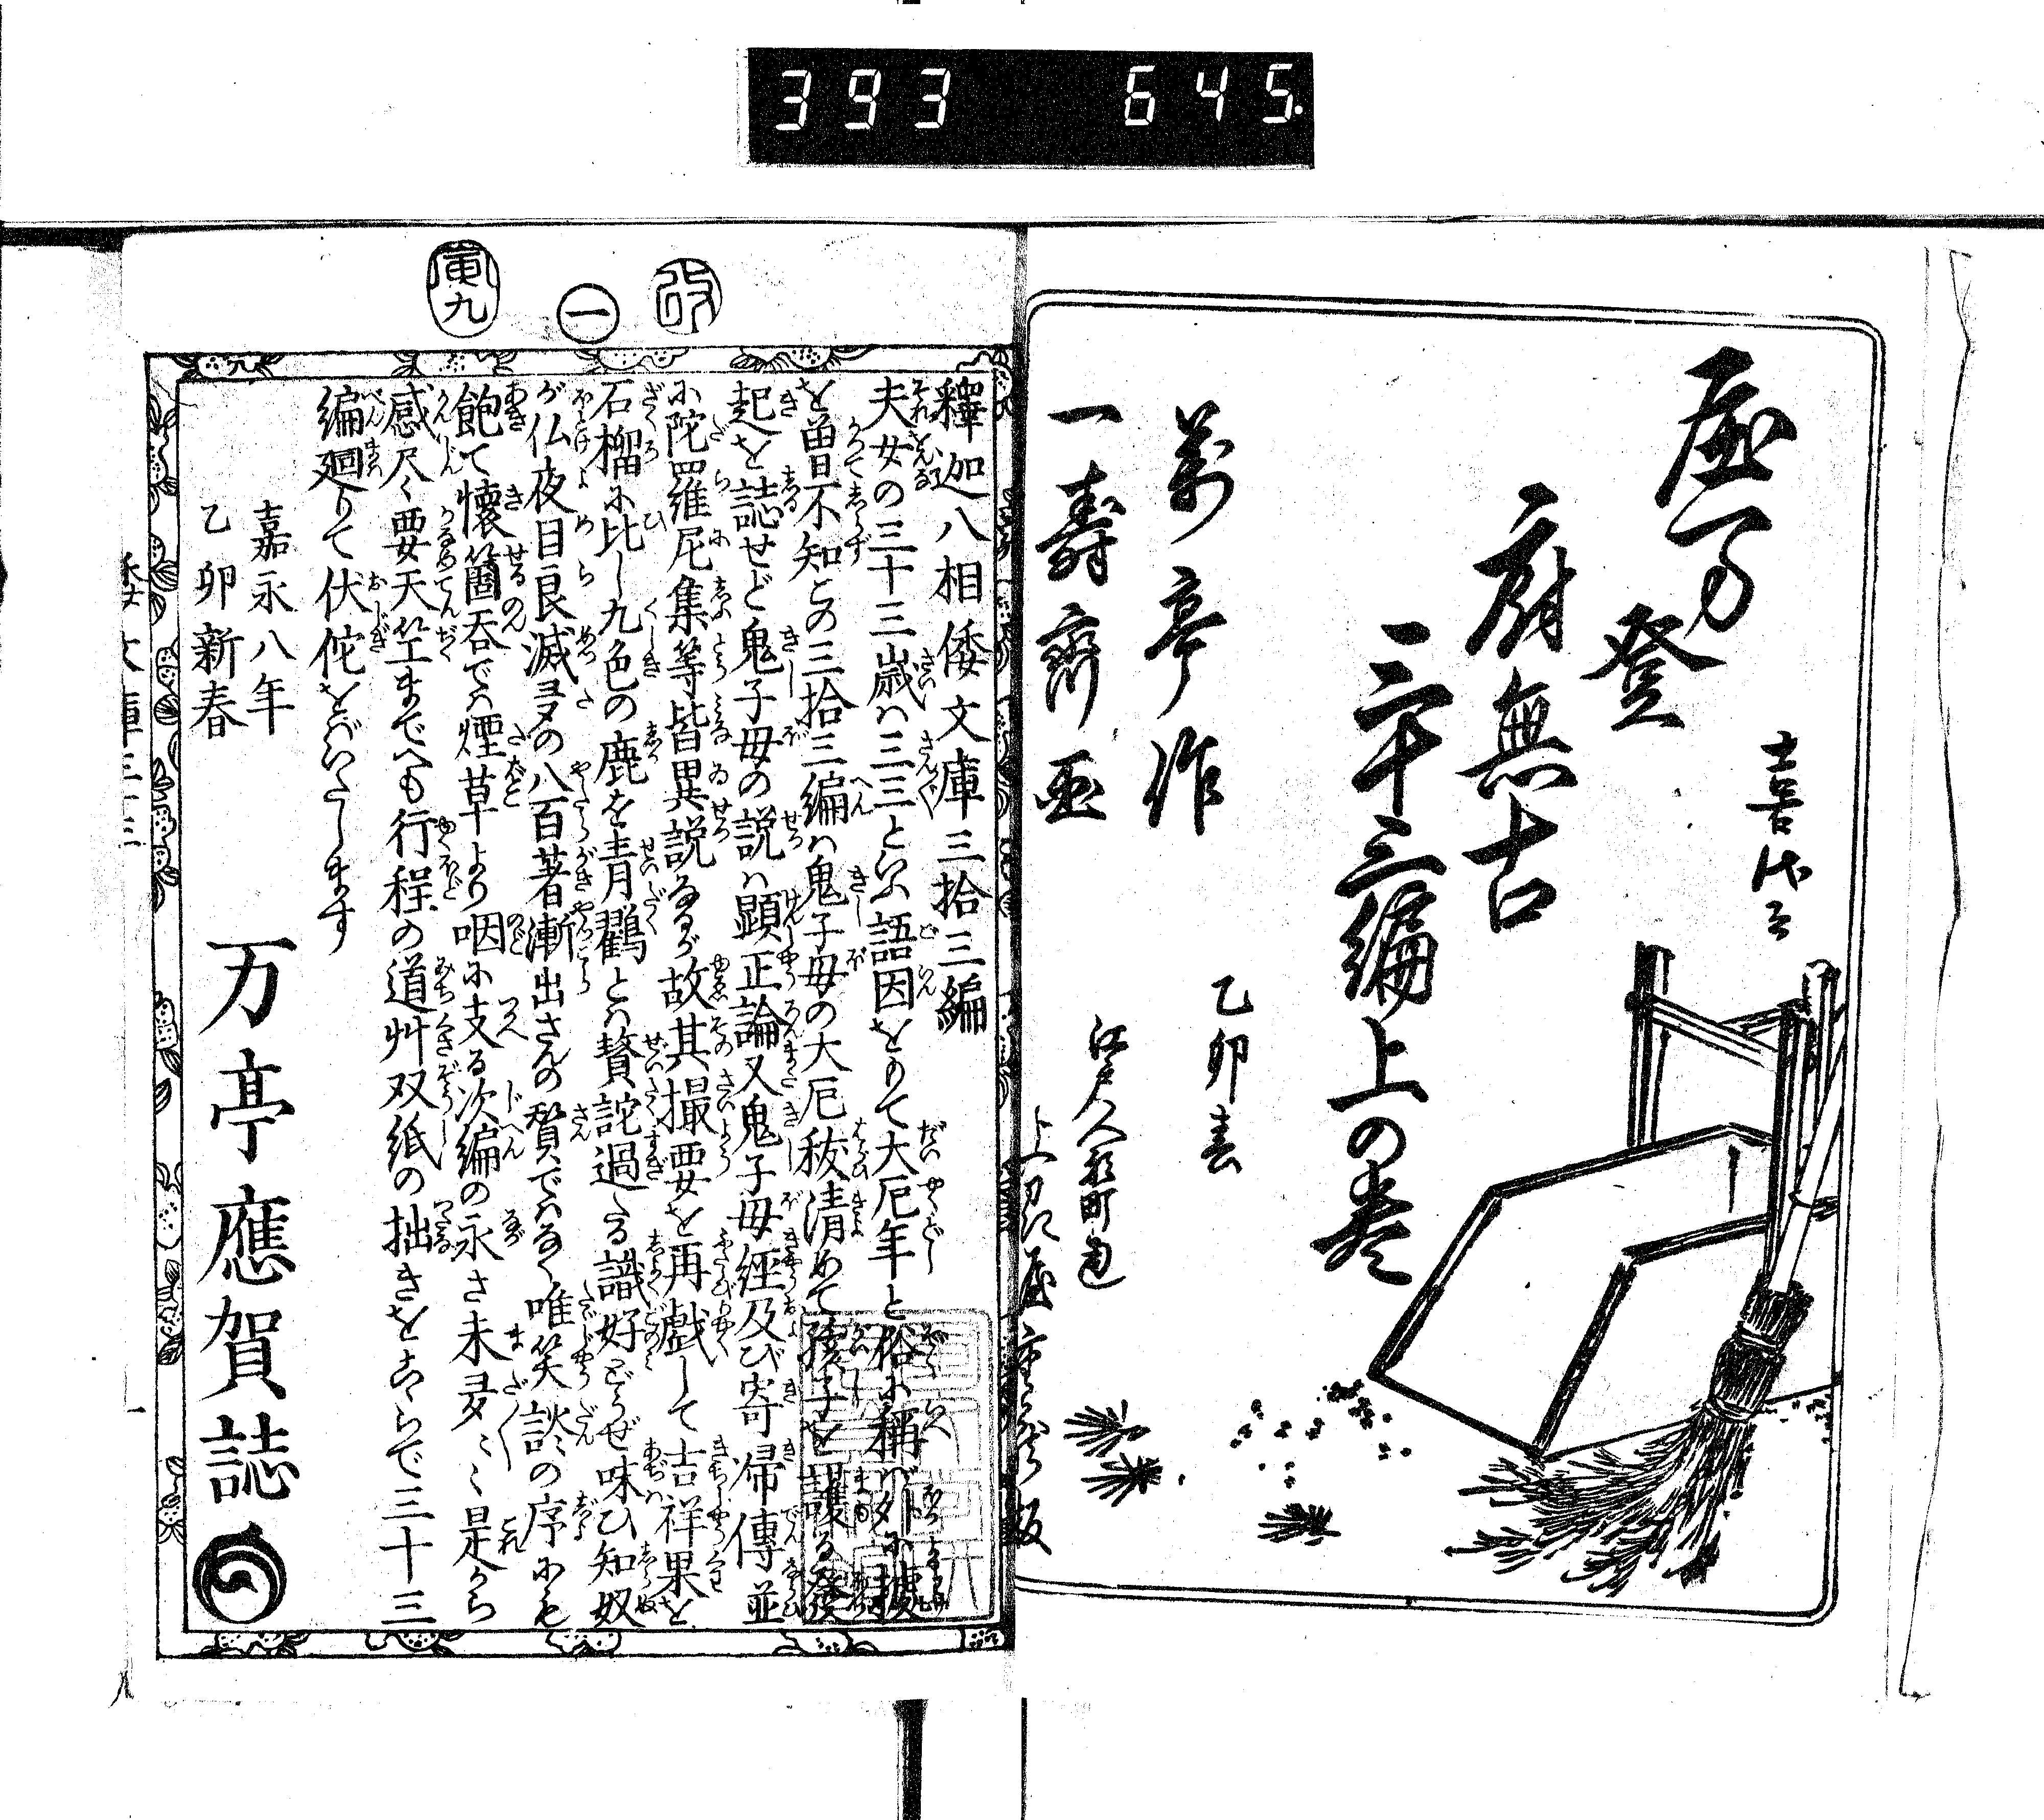 393 645.
屋万
登
廚無古
三十三編上の巻
乙卯春
萬亭作
江戸人形町通
一壽齋画
改
一
寅九
釋迦八相倭文庫三拾三編
夫女の三十三歳ハ三三といふ語因をもて大厄年と俗に稱バ夕に據
を曽不知この三拾三編ハ鬼子母の大厄秡清めて孩子を護る發
起を誌せど鬼子母の説ハ顕正論又鬼子母經及び寄帰傳並
に陀羅尼集等皆異説あるが故其撮要を再戯して吉祥果を
石榴に比し九色の鹿を青鸐とハ贅詫過たる識好どうぜ味ひ知奴
が仏夜目良滅多の八百著漸出さんの贅でハなく唯笑談の序にも
飽て懐箇呑でハ煙草より咽に支る次編の永さ未多〻〻是から
感尽〻要天竺までへも行程の道艸双紙の拙きをこゝらで三十三
編廻りて伏佗をバいたします
嘉永八年
乙卯新春
万亭應賀誌